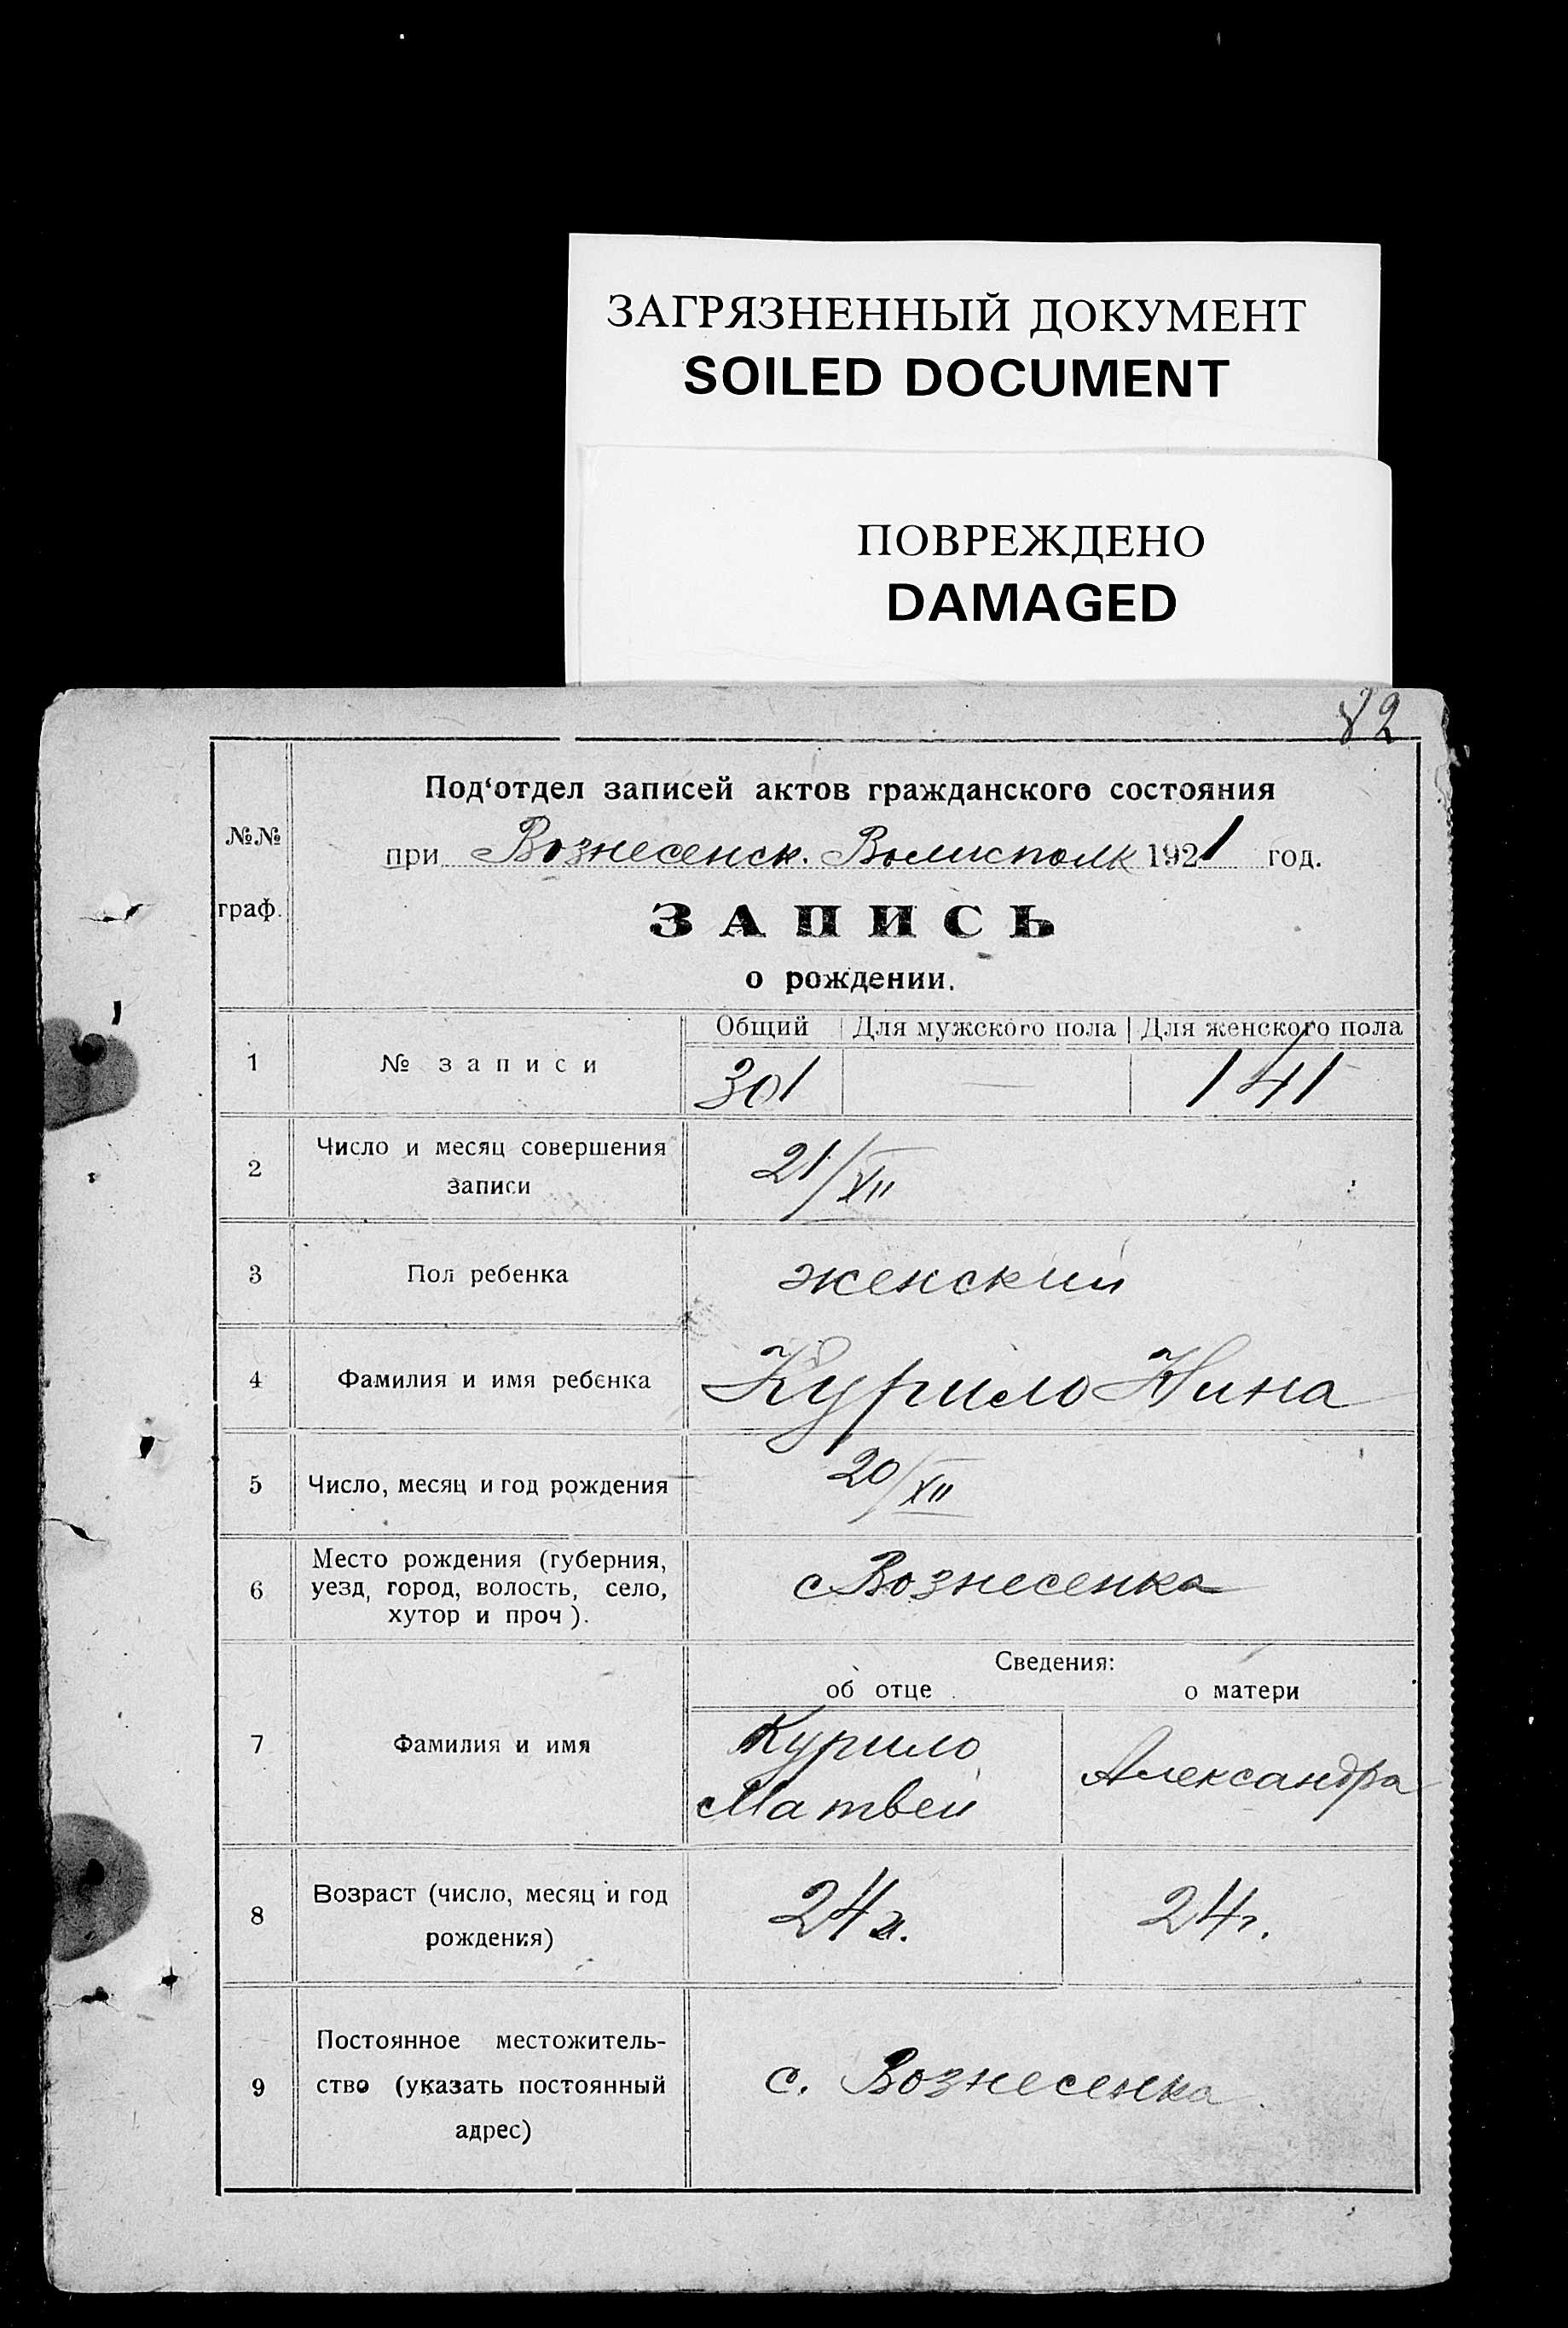 ЗАГРЯЗНЕННЫЙ ДОКУМЕНТ
SOILED DOCUMENT
ПОВРЕЖДЕНО
DAMAGED
82
№№
граф.
Под‘отдел записей актов гражданского состояния
при Вознесенск. Волисполк 1921 год.
ЗАПИСЬ
о рождении.
1 № записи
Общий Для мужского пола Для женского пола
301 — 141
2 Число и месяц совершения
записи
21/XII
3 Пол ребенка женский
4 Фамилия и имя ребенка Курило Нина
5 Число, месяц и год рождения 20/XII
6 Место рождения (губерния,
уезд, город, волость, село,
хутор и проч).
с Вознесенка
Сведения:
об отце о матери
7 Фамилия и имя
Курило
Матвей
Александра
8 Возраст (число, месяц и год
рождения)
24 г. 24 г.
9 Постоянное местожитель-
ство (указать постоянный
адрес)
с. Вознесенка.